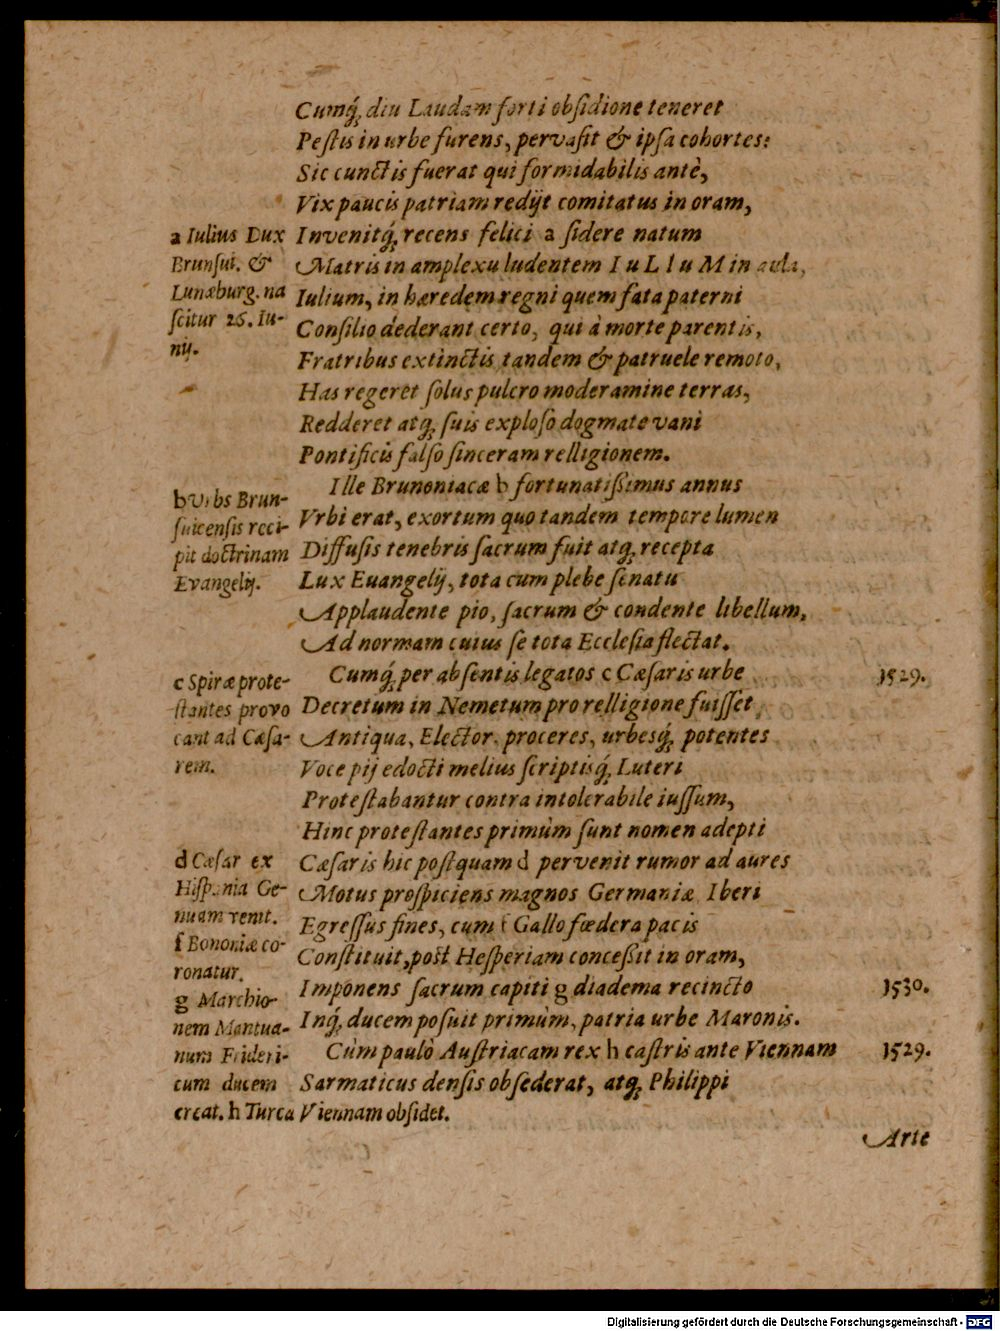 Cumq́; diu Laudam forti obſidione teneret
Peſtis in urbe furens, pervaſit & ipſa cohortes:
Sic cunctis fuerat qui formidabilis antè,
Vix paucis patriam redijt comitatus in oram,
a Iulius Dux
Brunſui. &
Lunæburg. na
ſcitur 26. Iu-
nij.
Invenitq́; recens felici a ſidere natum
Matris in amplexu ludentem I u L I u M in aula,
Iulium, in hæredem regni quem fata paterni
Conſilio dederant certo, qui à morte parentis,
Fratribus extinctis tandem & patruele remoto,
Has regeret ſolus pulcro moderamine terras,
Redderet atq; ſuis exploſo dogmate vani
Pontificis falſo ſinceram relligionem.
b Vrbs Brun-
ſuicenſis reci-
pit doctrinam
Evangelij.
Ille Brunoniacæ b fortunatißimus annus
Vrbi erat, exortum quo tandem tempore lumen
Diffuſis tenebris ſacrum fuit atq; recepta
Lux Euangelij, tota cum plebe ſenatu
Applaudente pio, ſacrum & condente libellum,
Ad normam cuius ſe tota Eccleſia flectat.
c Spiræ prote-
ſtantes provo
cant ad Cæſa-
rem.
Cumq́; per abſentis legatos c Cæſaris urbe 1529.
Decretum in Nemetum pro relligione fuiſſet
Antiqua, Elector, proceres, urbesq́; potentes
Voce pij edocti melius ſcriptisq́; Luteri
Proteſtabantur contra intolerabile iuſſum,
Hinc proteſtantes primùm ſunt nomen adepti
d Cæſar ex
Hiſpania Ge-
nuam venit.
f Bononiæ co-
ronatur.
g Marchio-
nem Mantua-
num Frideri-
cum ducem
creat. h Turca Viennam obſidet.
Cæſaris hic poſtquam d pervenit rumor ad aures
Motus proſpiciens magnos Germaniæ Iberi
Egreſſus fines, cum f Gallo fœdera pacis
Conſtituit, poſt Heſperiam conceßit in oram,
Imponens ſacrum capiti g diadema recincto 1530.
Inq́; ducem poſuit primùm, patria urbe Maronis.
Cùm paulò Auſtriacam rex h caſtris ante Viennam 1529.
Sarmaticus denſis obſederat, atq; Philippi
Arte
Digitalisierung gefördert durch die Deutsche Forschungsgemeinschaft - DFG